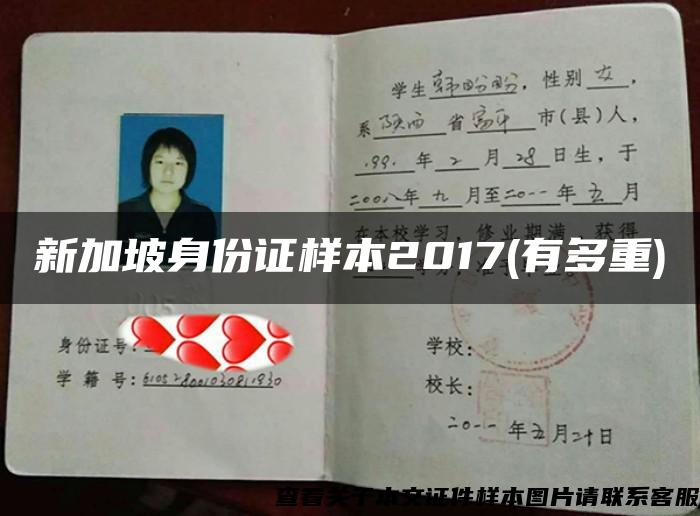 学生韩盼盼，性别女，
系陕西省富平市(县)人，
1991年2月28日生，于
二00八年九月至二0一一年五月
在本校学习，修业期满，获得
新加坡身份证样本2017(有多重)
身份证号：
学籍号：610528001030811930
学校：
校长：
二0一一年五月二十日
查看关于本文证件样本图片请联系客服